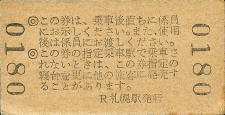 0180
◎この券は、乗車後直ちに係員
にお示しください。また、使用
後は係員にお渡しください。
◎この券の指定乗車駅で乗車さ
れないときは、この券指定の
寝台を更に他の旅客に発売す
ることがあります。
R札幌駅発行
0180